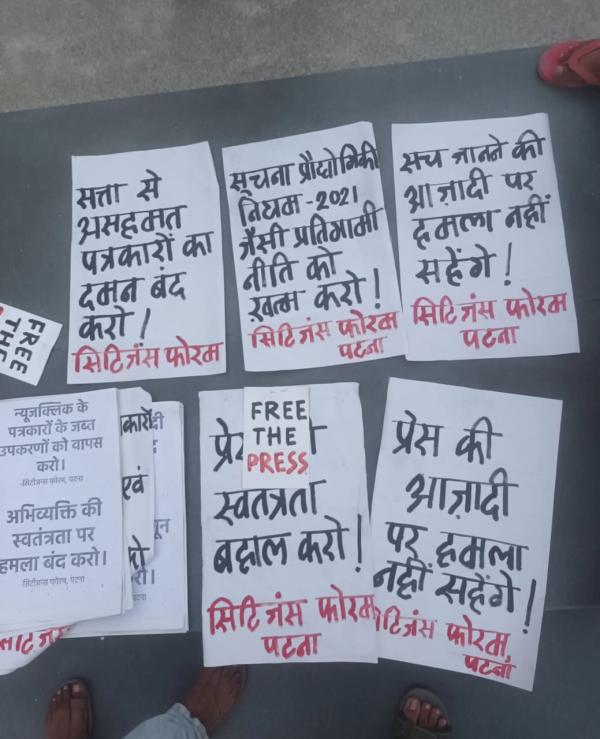 सत्ता से
असहमत
पत्रकारों का
दमन बंद
करो!
सिटिजंस फोरम
सूचना प्रौद्योगिकी
नियम-2021
जैसी प्रतिगामी
नीति को
ख़त्म करो!
सिटिजंस फोरम
पटना
सच जानने की
आज़ादी पर
हमला नहीं
सहेंगे!
सिटिजंस फोरम
पटना
FREE
THE
न्यूजक्लिक के
पत्रकारों के जब्त
उपकरणों को वापस
करो।
-सिटीजन्स फोरम, पटना
अभिव्यक्ति की
स्वतंत्रता पर
हमला बंद करो।
-सिटीजन्स फोरम, पटना
एवं
FREE
THE
PRESS
स्वतंत्रता
बहाल करो!
सिटिजंस फोरम
पटना
प्रेस की
आज़ादी
पर हमला
नहीं सहेंगे!
सिटिजंस फोरम
पटना